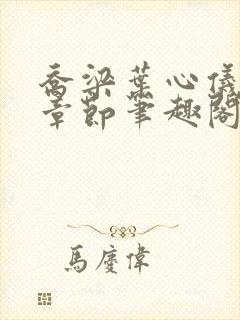 乔梁葉心儀
章節筆趣閣
馬慶偉